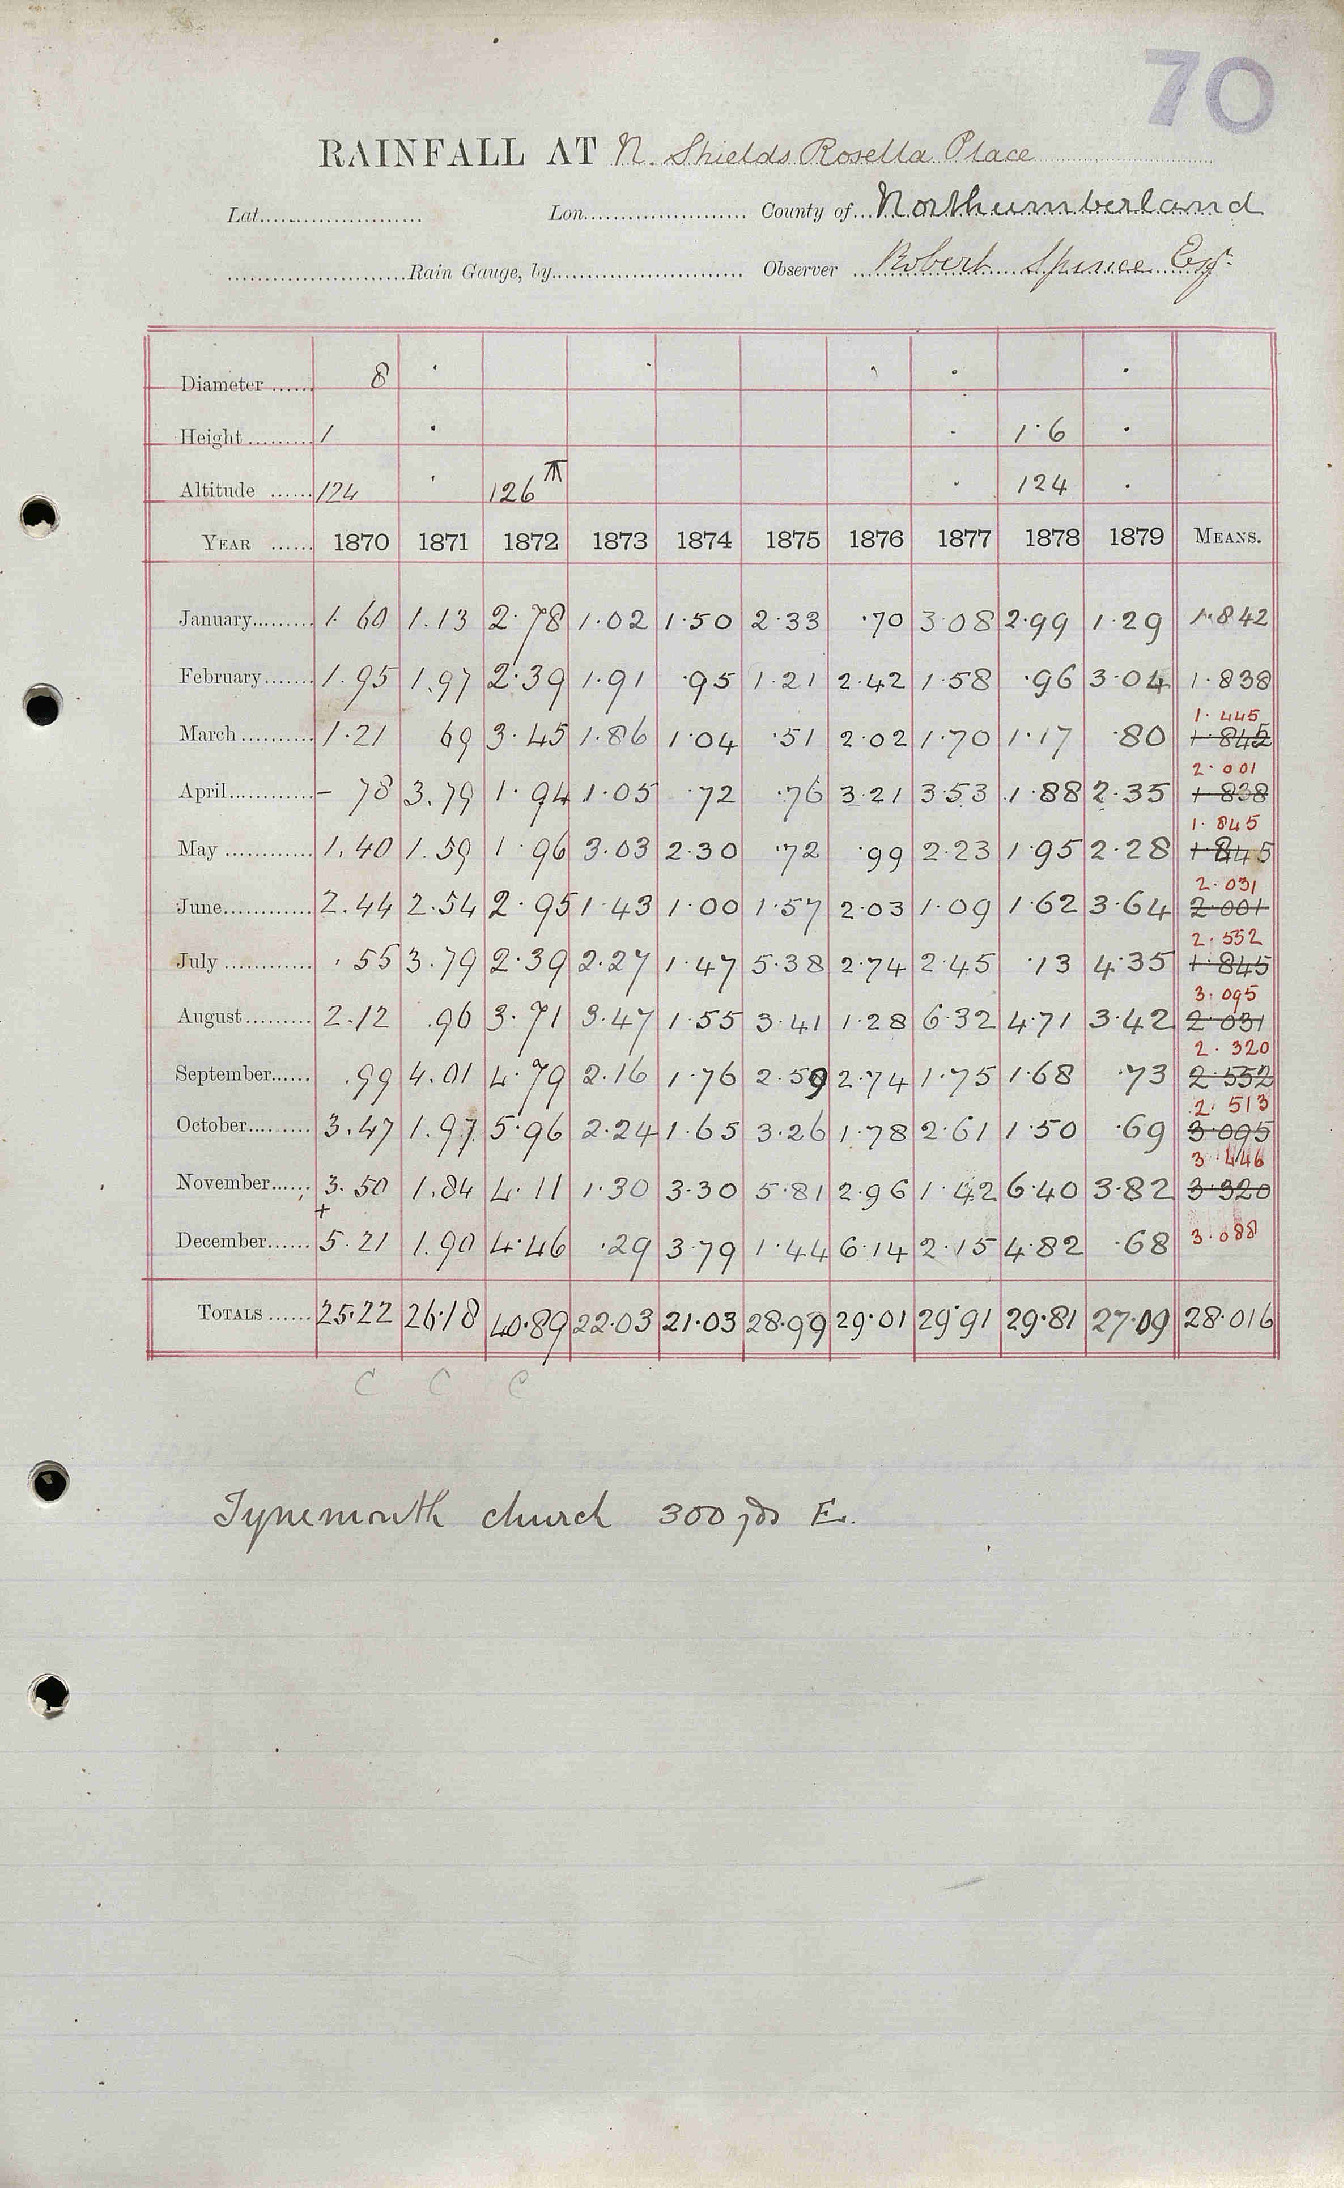 70
RAINFALL AT N. Shields Rosella Place
Lat. Lon. County of Northumberland
Rain Gauge, by Observer Robert Spence Esq.
Diameter 8
Height 1 1·6
Altitude 124 126 124
YEAR 1870 1871 1872 1873 1874 1875 1876 1877 1878 1879 MEANS.
January 1·60 1.13 2·78 1·02 1·50 2·33 ·70 3·08 2·99 1·29 1·842
February 1.95 1.97 2·39 1·91 ·95 1·21 2·42 1·58 ·96 3·04 1·838
1·445
March 1·21 69 3·45 1·86 1·04 ·51 2·02 1·70 1·17 ·80 1·842
2·001
April - 78 3.79 1·94 1·05 ·72 ·76 3·21 3·53 1·88 2·35 1·838
1·845
May 1.40 1.59 1·96 3·03 2·30 ·72 ·99 2·23 1·95 2·28 1·845
2·031
June 2.44 2·54 2·95 1·43 1·00 1·57 2·03 1·09 1·62 3·64 2·001
2·552
July ·55 3.79 2·39 2·27 1·47 5·38 2·74 2·45 ·13 4·35 1·845
3·095
August 2.12 .96 3·71 3·47 1·55 3·41 1·28 6·32 4·71 3·42 2·031
2·320
September .99 4.01 4·79 2·16 1·76 2·59 2·74 1·75 1·68 ·73 2·552
2·513
October 3.47 1.97 5·96 2·24 1·65 3·26 1·78 2·61 1·50 ·69 3·095
3·446
November 3.50 1.84 4·11 1·30 3·30 5·81 2·96 1·42 6·40 3·82 3·320
+
December 5.21 1.90 4·46 ·29 3·79 1·44 6·14 2·15 4·82 ·68 3·088
TOTALS 25·22 26·18 40·89 22·03 21·03 28·99 29·01 29·91 29·81 27·09 28·016
C C C
Tynemouth church 300 yds E.